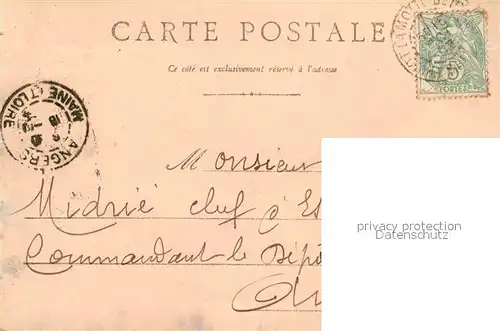 CARTE POSTALE
Ce côté est exclusivement réservé à l'adresse
5
POSTES
ANGERS
MAINE ET LOIRE
Monsieur
Midrié chef d'Es
Commandant le Dépô
privacy protection
Datenschutz